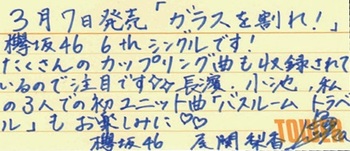 3月7日発売「ガラスを割れ!」
欅坂46 6thシングルです!
たくさんのカップリング曲も収録されて
いるので注目です☆☆長濱、小池、私
の3人での初ユニット曲「バスルームトラベ
ル」もお楽しみに♡♡
欅坂46 尾関梨香